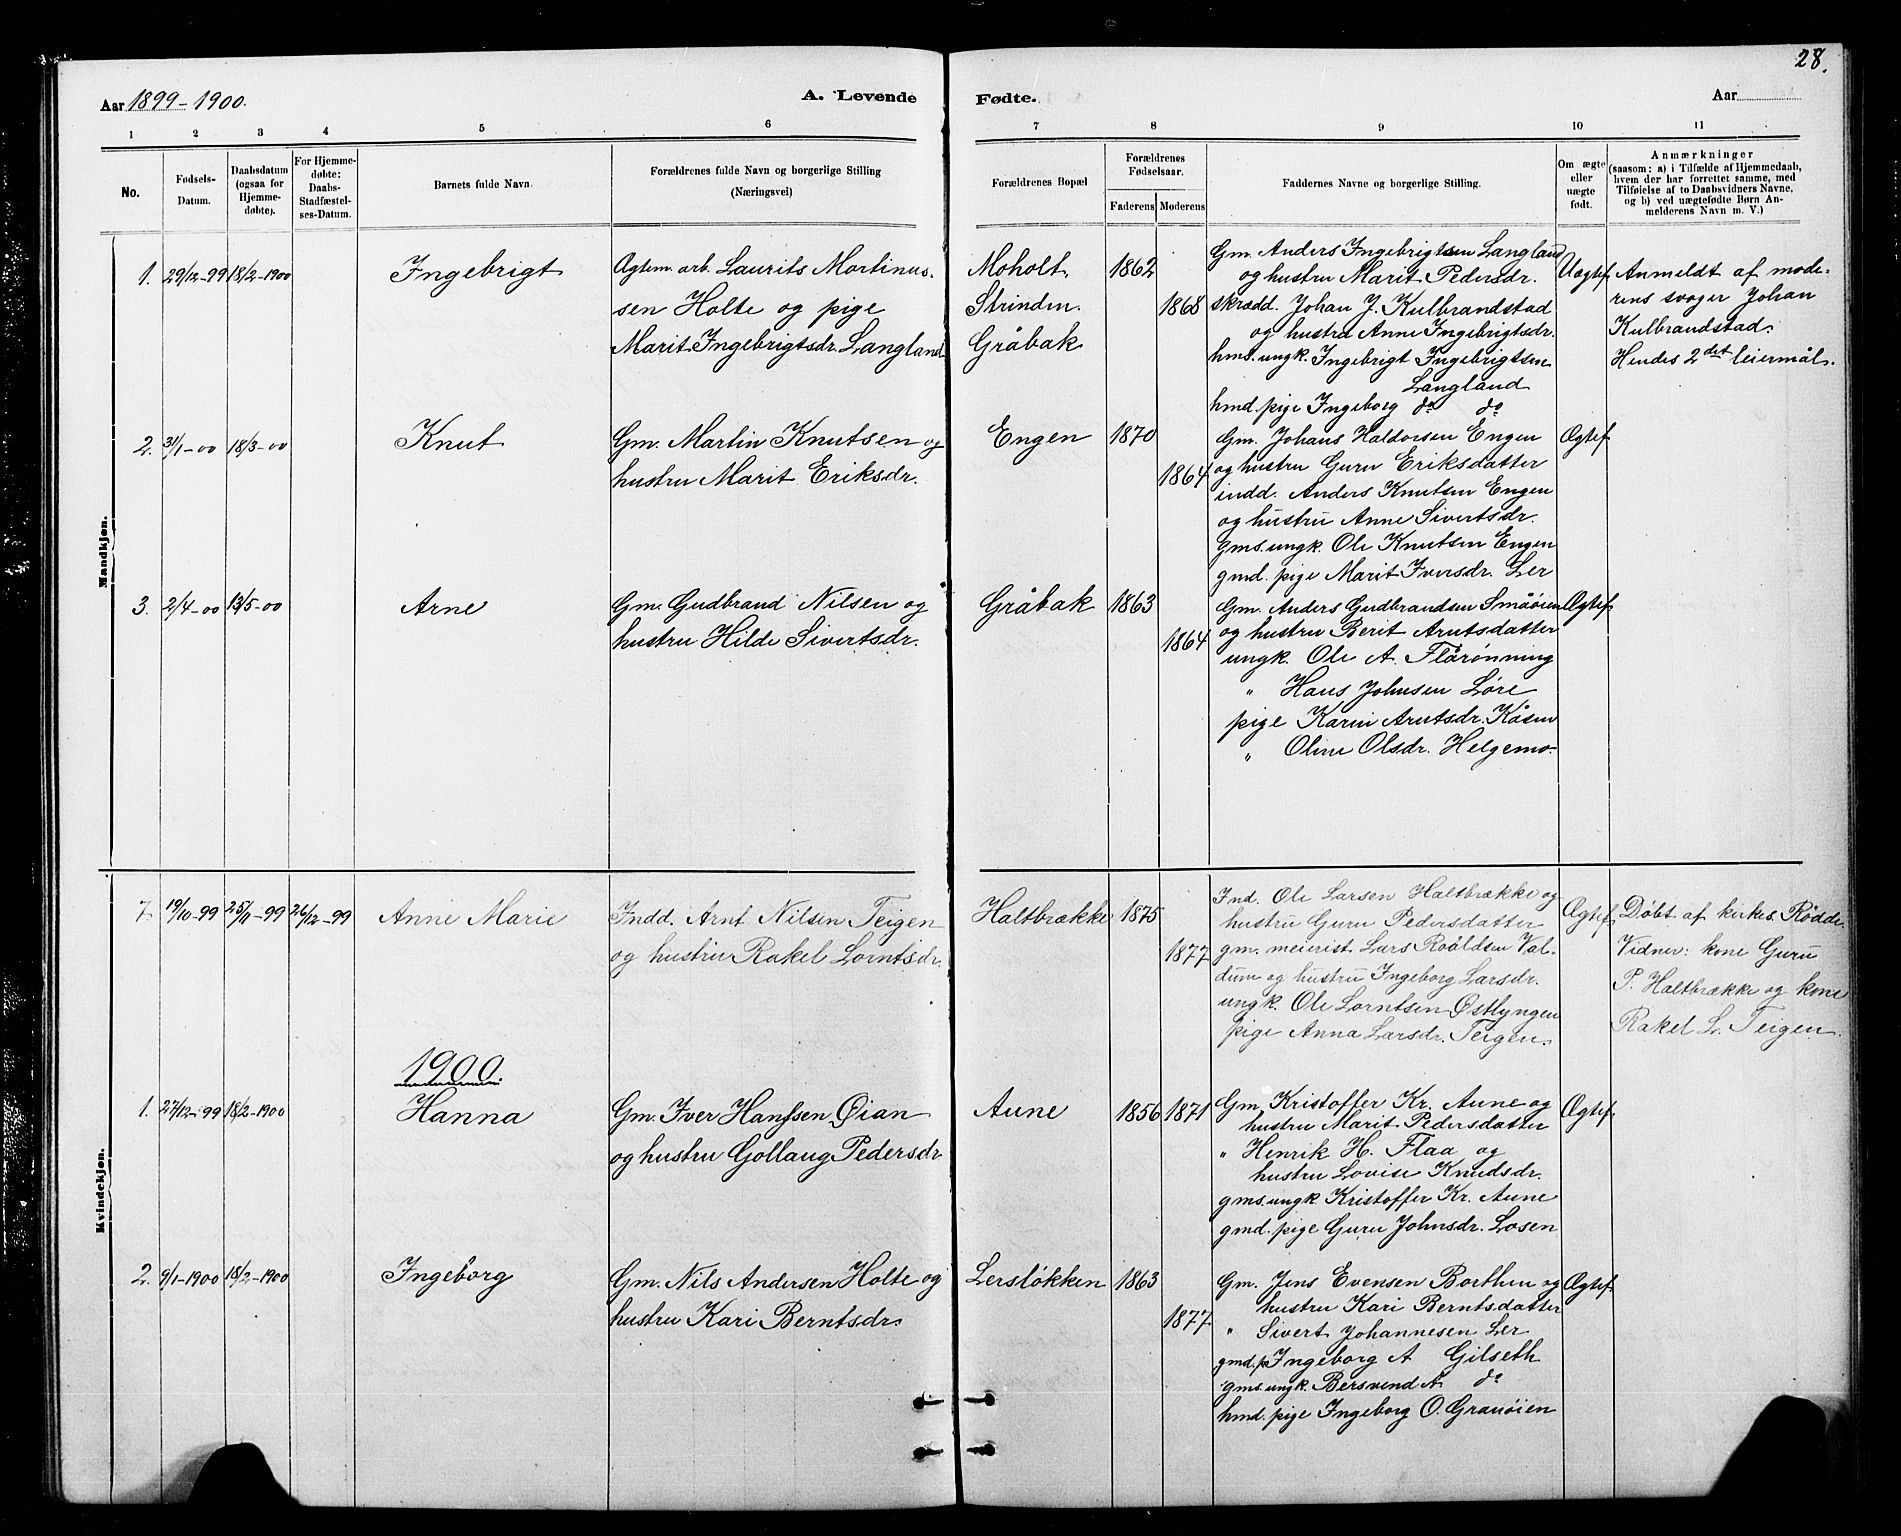 28.
Aar 1899-1900. A. Levende Fødte. Aar
1 2 3 4 5 6 7 8 9 10 11
No.
Fødsels-
Datum.
Daabsdatum
(ogsaa for
Hjemme-
døbte).
For Hjemme-
døbte:
Daabs-
Stadfæstel-
ses-Datum.
Barnets fulde Navn.
Forældrenes fulde Navn og borgerlige Stilling
(Næringsvei)
Forældrenes Bopæl
Forældrenes
Fødselsaar.
Faderens Moderens
Faddernes Navne og borgerlige Stilling.
Om ægte
eller
uægte
født.
Anmærkninger
(saasom: a) i Tilfælde af Hjemmedaab,
hvem der har forrettet samme, med
Tilføielse af to Daabsvidners Navne,
og b) ved uægtefødte Børn An-
melderens Navn m. V.)
Mandkjøn.
1. 29/12-99 18/2-1900 Ingebrigt
Agtem. arb. Laurits Martinus-
sen Holte og pige
Marit Ingebrigtsdr. Langland
Moholt
Strinden.
Gråbak
1862
1868
Gm. Anders Ingebrigtsen Langland
og hustru Marit Pedersdr.
skrædd. Johan J. Kulbrandstad
og hustru Anne Ingebrigtsdr.
hms. ungk. Ingebrigt Ingebrigtsen
Langland
hmd. pige Ingeborg do do
Uægtef.
Anmeldt af mode-
rens svoger Johan
Kulbrandstad.
Hendes 2det leiermål.
2. 31/1-00 18/3-00 Knut
Gm. Martin Knutsen og
hustru Marit Eriksdr.
Engen 1870
1864
Gm. Johans Haldorsen Engen
og hustru Guru Eriksdatter
indd. Anders Knutsen Engen
og hustru Anne Sivertsdr.
gms. ungk. Ole Knutsen Engen
gmd. pige Marit Iversdr. Ler
Ægtef
3. 2/4-00 13/5-00 Arne
Gm. Gudbrand Nilsen og
hustru Hilde Sivertsdr.
Gråbak 1863
1864
Gm. Anders Gudbrandsen Småøien
og hustru Berit Arntsdatter
ungk. Ole A. Flårønning
" Hans Johnsen Løre
pige Karin Arntsdr. Kåsen
" Oline Olsdr. Helgemo.
Ægtef
Kvindekjøn.
7. 19/10-99 25/11-99 26/12-99 Anne Marie
Indd. Arnt Nilsen Teigen
og hustru Rakel Lorntsdr.
Haltbrække 1875
1877
Ind. Ole Larsen Haltbrække og
hustru Guru Pedersdatter
gm. meierist Lars Roaldsen Val-
dum og hustru Ingeborg Larsdr.
ungk. Ole Lorntsen Østlyngen
pige Anna Larsdr. Teigen.
Ægtef.
Døbt af kirkes. Rødde.
Vidner: kone Guru
P. Haltbrække og kone
Rakel L. Teigen.
1900.
1. 27/12-99 18/2-1900 Hanna
Gm. Iver Hanssen Øian
og hustru Gollaug Pedersdr
Aune 1856 1871
Gm. Kristoffer Kr. Aune og
hustru Marit Pedersdatter
" Henrik H. Flaa og
hustru Lovise Knudsdr.
gms. ungk Kristoffer Kr. Aune
gmd. pige Guru Johnsdr. Losen
Ægtef.
2. 9/1-1900 18/2-1900 Ingeborg
Gm. Nils Andersen Holte og
hustru Kari Berntsdr.
Lersløkken 1863
1877
Gm. Jens Evensen Borthen og
hustru Kari Berntsdatter
" Sivert Johannesen Ler
gmd. p. Ingeborg A Gilseth
gms. ungk. Bersvend A. do
hmd. pige Ingeborg O. Granøien
Ægtef.